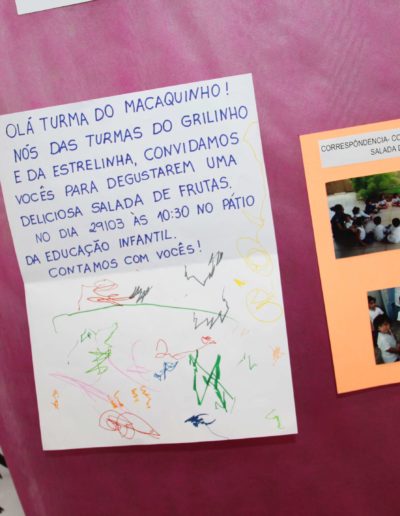 OLÁ TURMA DO MACAQUINHO!
NÓS DAS TURMAS DO GRILINHO
E DA ESTRELINHA, CONVIDAMOS
VOCÊS PARA DEGUSTAREM UMA
DELICIOSA SALADA DE FRUTAS,
NO DIA 29/03 ÀS 10:30 NO PÁTIO
DA EDUCAÇÃO INFANTIL.
CONTAMOS COM VOCÊS!
CORRESPÔNDENCIA- CO
SALADA D